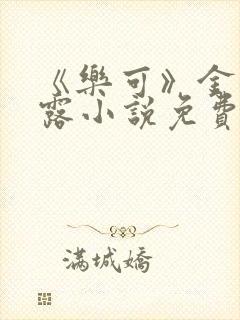 《樂可》金
露小說免費
滿城嬌